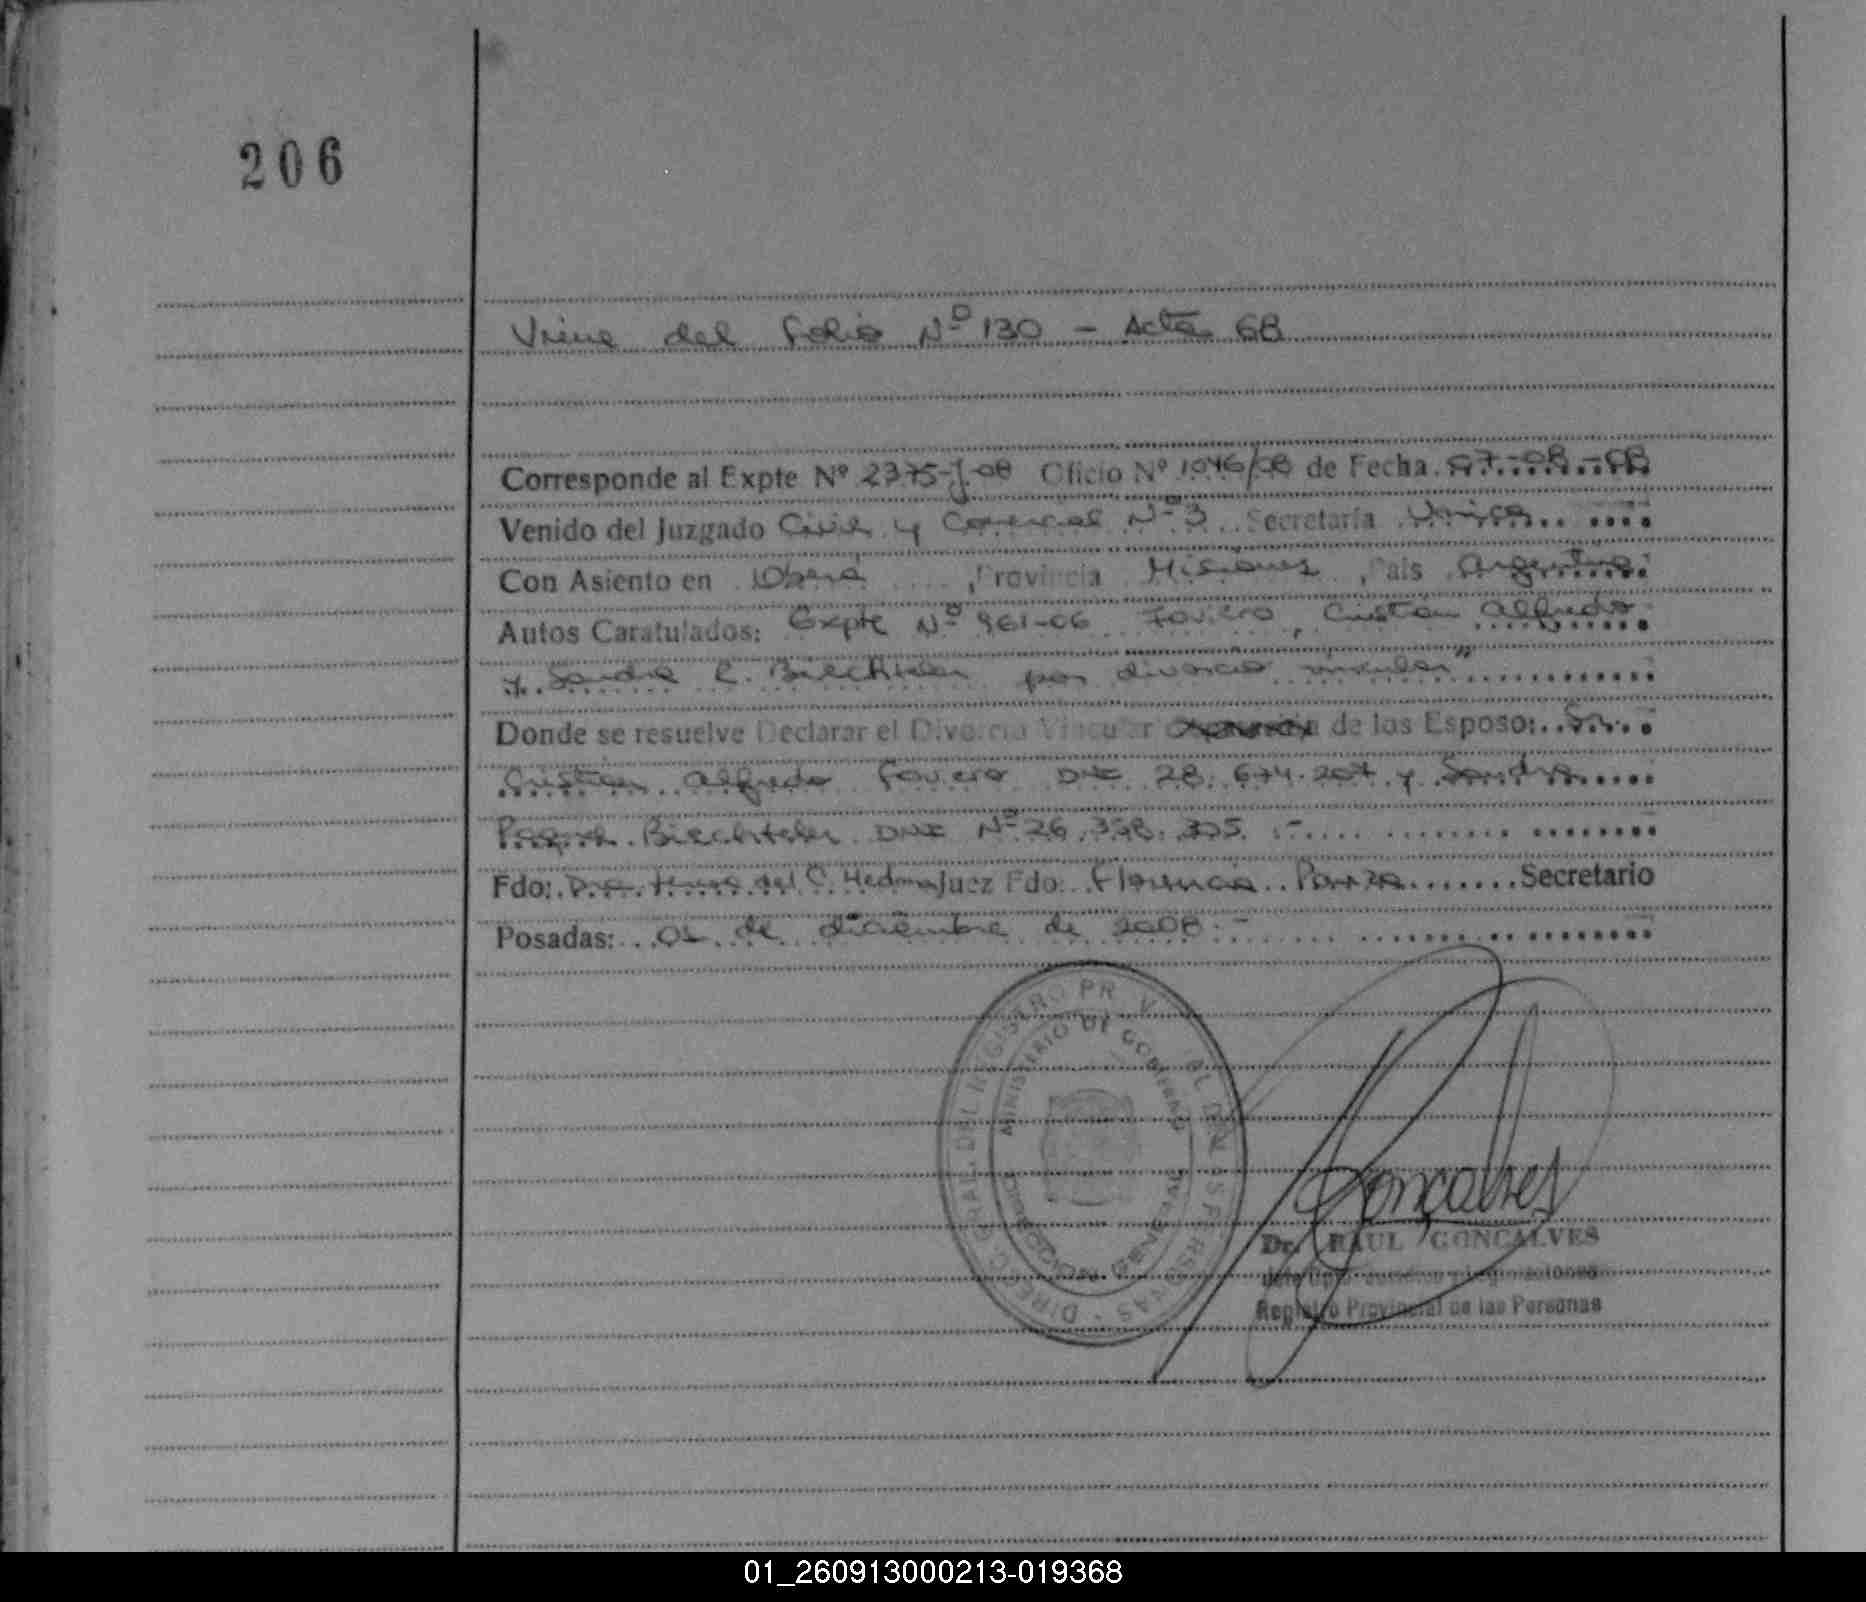 206
Viene del folio Nº 130 - Acta 68
Corresponde al Expte Nº 2375-J-08 Oficio Nº 1046/08 de Fecha 07-08-08
Venido del Juzgado Civil y Comercial Nº 3 Secretaría Unica
Con Asiento en Oberá, Provincia Misiones, País Argentina
Autos Caratulados: Expte Nº 961-06 Favero, Cristian Alfredo
y Sandra R. Biechteler por divorcio vincular"
Donde se resuelve Declarar el Divorcio Vincular de los Esposo: Sr.
Cristian Alfredo Favero DNI 28.674.207 y Sandra
Biechteler DNI Nº 26.358.305.-
Fdo: Dra. del C. Juez Fdo: Florencia Secretario
Posadas: 01 de diciembre de 2008.-
DIREC. GRAL. DEL REGISTRO PROV. DE LAS PERSONAS
MINISTERIO DE GOBIERNO
Goncalves
Dr. RAUL GONCALVES
Registro Provincial de las Personas
01_260913000213-019368